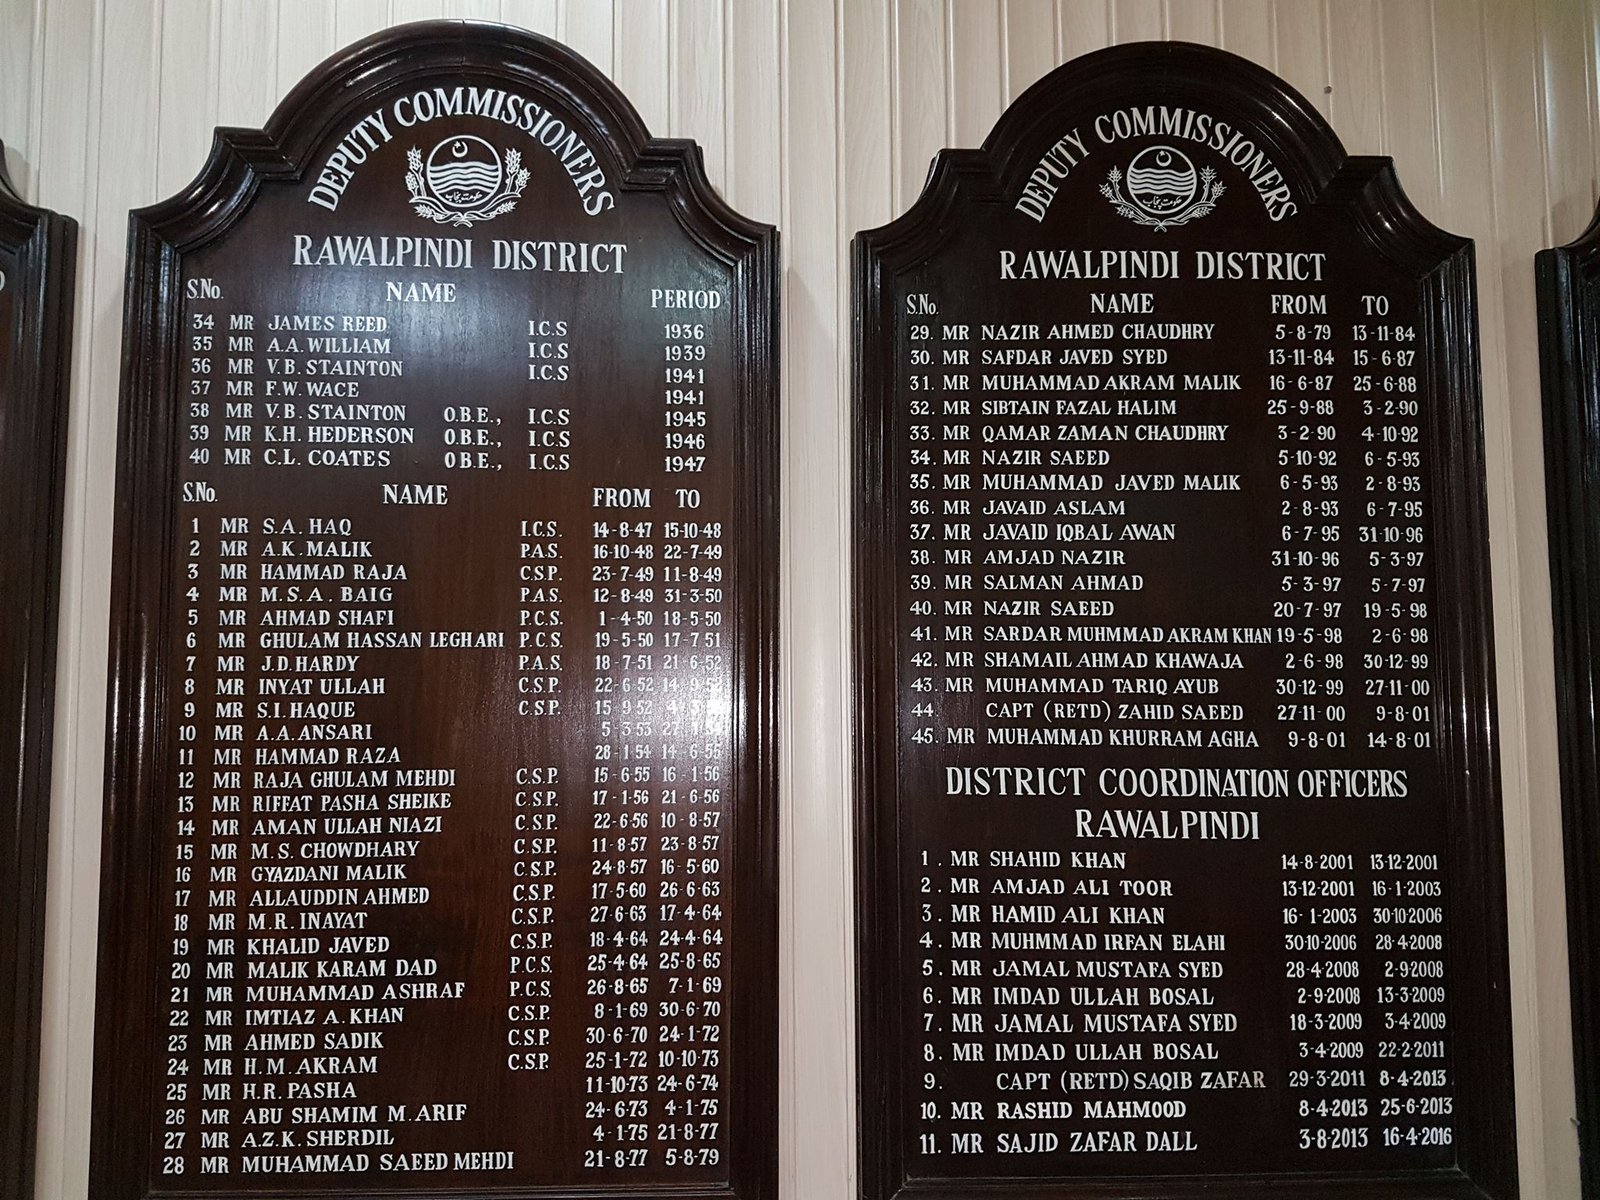 DEPUTY COMMISSIONERS
حکومت پنجاب
RAWALPINDI DISTRICT
S.No. NAME PERIOD
34 MR JAMES REED I.C.S 1936
35 MR A.A.WILLIAM I.C.S 1939
36 MR V.B.STAINTON I.C.S 1941
37 MR F.W.WACE 1941
38 MR V.B.STAINTON O.B.E., I.C.S 1945
39 MR K.H.HEDERSON O.B.E., I.C.S 1946
40 MR C.L.COATES O.B.E., I.C.S 1947
S.No. NAME FROM TO
1 MR S.A.HAQ I.C.S. 14-8-47 15-10-48
2 MR A.K.MALIK P.A.S. 16-10-48 22-7-49
3 MR HAMMAD RAJA C.S.P. 23-7-49 11-8-49
4 MR M.S.A.BAIG P.A.S. 12-8-49 31-3-50
5 MR AHMAD SHAFI P.C.S. 1-4-50 18-5-50
6 MR GHULAM HASSAN LEGHARI P.C.S. 19-5-50 17-7-51
7 MR J.D.HARDY P.A.S. 18-7-51 21-6-52
8 MR INYAT ULLAH C.S.P. 22-6-52
9 MR S.I.HAQUE C.S.P. 15 9 52
10 MR A.A.ANSARI 5-3-53
11 MR HAMMAD RAZA 28-1-54 14-6-55
12 MR RAJA GHULAM MEHDI C.S.P. 15-6-55 16-1-56
13 MR RIFFAT PASHA SHEIKE C.S.P. 17-1-56 21-6-56
14 MR AMAN ULLAH NIAZI C.S.P. 22-6-56 10-8-57
15 MR M.S.CHOWDHARY C.S.P. 11-8-57 23-8-57
16 MR GYAZDANI MALIK C.S.P. 24-8-57 16-5-60
17 MR ALLAUDDIN AHMED C.S.P. 17-5-60 26-6-63
18 MR M.R.INAYAT C.S.P. 27-6-63 17-4-64
19 MR KHALID JAVED C.S.P. 18-4-64 24-4-64
20 MR MALIK KARAM DAD P.C.S. 25-4-64 25-8-65
21 MR MUHAMMAD ASHRAF P.C.S. 26-8-65 7-1-69
22 MR IMTIAZ A.KHAN C.S.P. 8-1-69 30-6-70
23 MR AHMED SADIK C.S.P. 30-6-70 24-1-72
24 MR H.M.AKRAM C.S.P. 25-1-72 10-10-73
25 MR H.R.PASHA 11-10-73 24-6-74
26 MR ABU SHAMIM M.ARIF 24-6-73 4-1-75
27 MR A.Z.K.SHERDIL 4-1-75 21-8-77
28 MR MUHAMMAD SAEED MEHDI 21-8-77 5-8-79
DEPUTY COMMISSIONERS
حکومت پنجاب
RAWALPINDI DISTRICT
S.No. NAME FROM TO
29. MR NAZIR AHMED CHAUDHRY 5-8-79 13-11-84
30. MR SAFDAR JAVED SYED 13-11-84 15-6-87
31. MR MUHAMMAD AKRAM MALIK 16-6-87 25-6-88
32. MR SIBTAIN FAZAL HALIM 25-9-88 3-2-90
33. MR QAMAR ZAMAN CHAUDHRY 3-2-90 4-10-92
34. MR NAZIR SAEED 5-10-92 6-5-93
35. MR MUHAMMAD JAVED MALIK 6-5-93 2-8-93
36. MR JAVAID ASLAM 2-8-93 6-7-95
37. MR JAVAID IQBAL AWAN 6-7-95 31-10-96
38. MR AMJAD NAZIR 31-10-96 5-3-97
39. MR SALMAN AHMAD 5-3-97 5-7-97
40. MR NAZIR SAEED 20-7-97 19-5-98
41. MR SARDAR MUHMMAD AKRAM KHAN 19-5-98 2-6-98
42. MR SHAMAIL AHMAD KHAWAJA 2-6-98 30-12-99
43. MR MUHAMMAD TARIQ AYUB 30-12-99 27-11-00
44. CAPT (RETD) ZAHID SAEED 27-11-00 9-8-01
45. MR MUHAMMAD KHURRAM AGHA 9-8-01 14-8-01
DISTRICT COORDINATION OFFICERS
RAWALPINDI
1. MR SHAHID KHAN 14-8-2001 13-12-2001
2. MR AMJAD ALI TOOR 13-12-2001 16-1-2003
3. MR HAMID ALI KHAN 16-1-2003 30-10-2006
4. MR MUHMMAD IRFAN ELAHI 30-10-2006 28-4-2008
5. MR JAMAL MUSTAFA SYED 28-4-2008 2-9-2008
6. MR IMDAD ULLAH BOSAL 2-9-2008 13-3-2009
7. MR JAMAL MUSTAFA SYED 18-3-2009 3-4-2009
8. MR IMDAD ULLAH BOSAL 3-4-2009 22-2-2011
9. CAPT (RETD) SAQIB ZAFAR 29-3-2011 8-4-2013
10. MR RASHID MAHMOOD 8-4-2013 25-6-2013
11. MR SAJID ZAFAR DALL 3-8-2013 16-4-2016